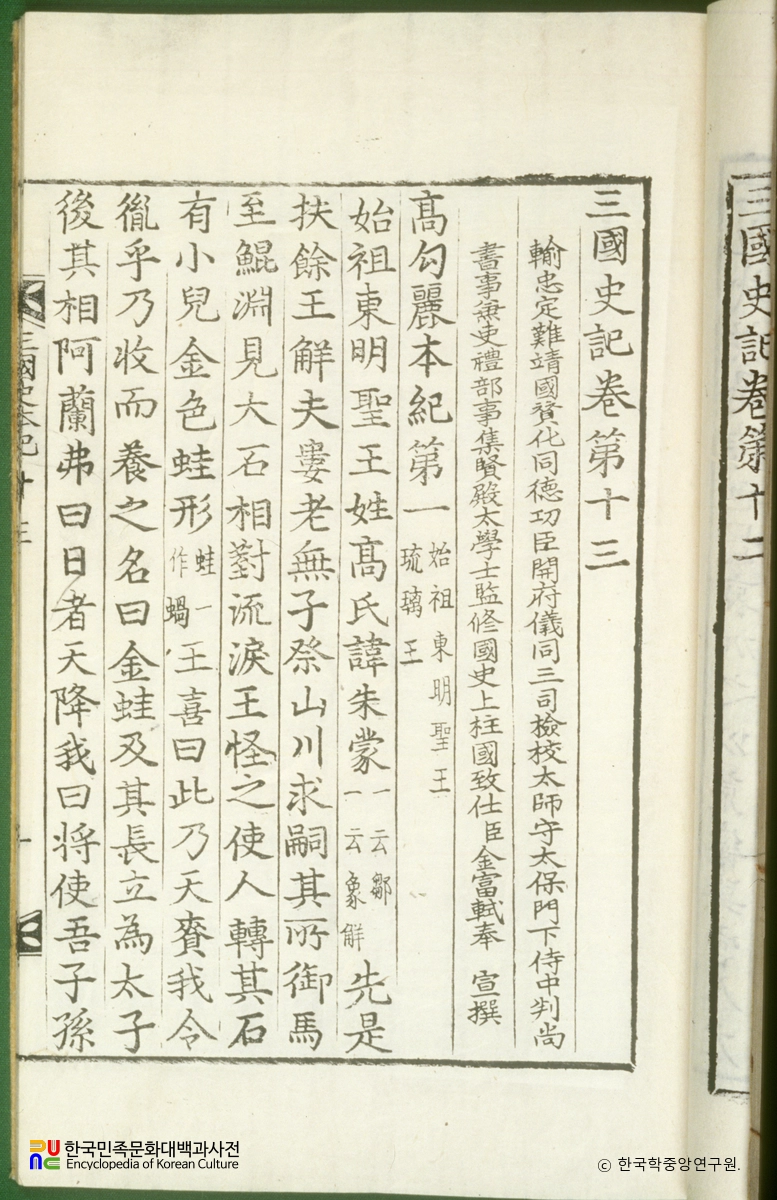 三國史記卷第十三
輸忠定難靖國賛化同德功臣開府儀同三司檢校太師守太保門下侍中判尚
書事兼吏禮部事集賢殿太學士監修國史上柱國致仕臣金富軾奉 宣撰
高句麗本紀第一 始祖東明聖王 琉璃王
始祖東明聖王姓高氏諱朱蒙 一云鄒 一云象解 先是
扶餘王解夫婁老無子祭山川求嗣其所御馬
至鯤淵見大石相對流淚王怪之使人轉其石
有小兒金色蛙形 蛙一 作蝸 王喜曰此乃天賚我令
胤乎乃收而養之名曰金蛙及其長立為太子
後其相阿蘭弗曰日者天降我曰將使吾子孫
三國史本紀十三
三國史記卷第十二
한국민족문화대백과사전
Encyclopedia of Korean Culture
© 한국학중앙연구원.